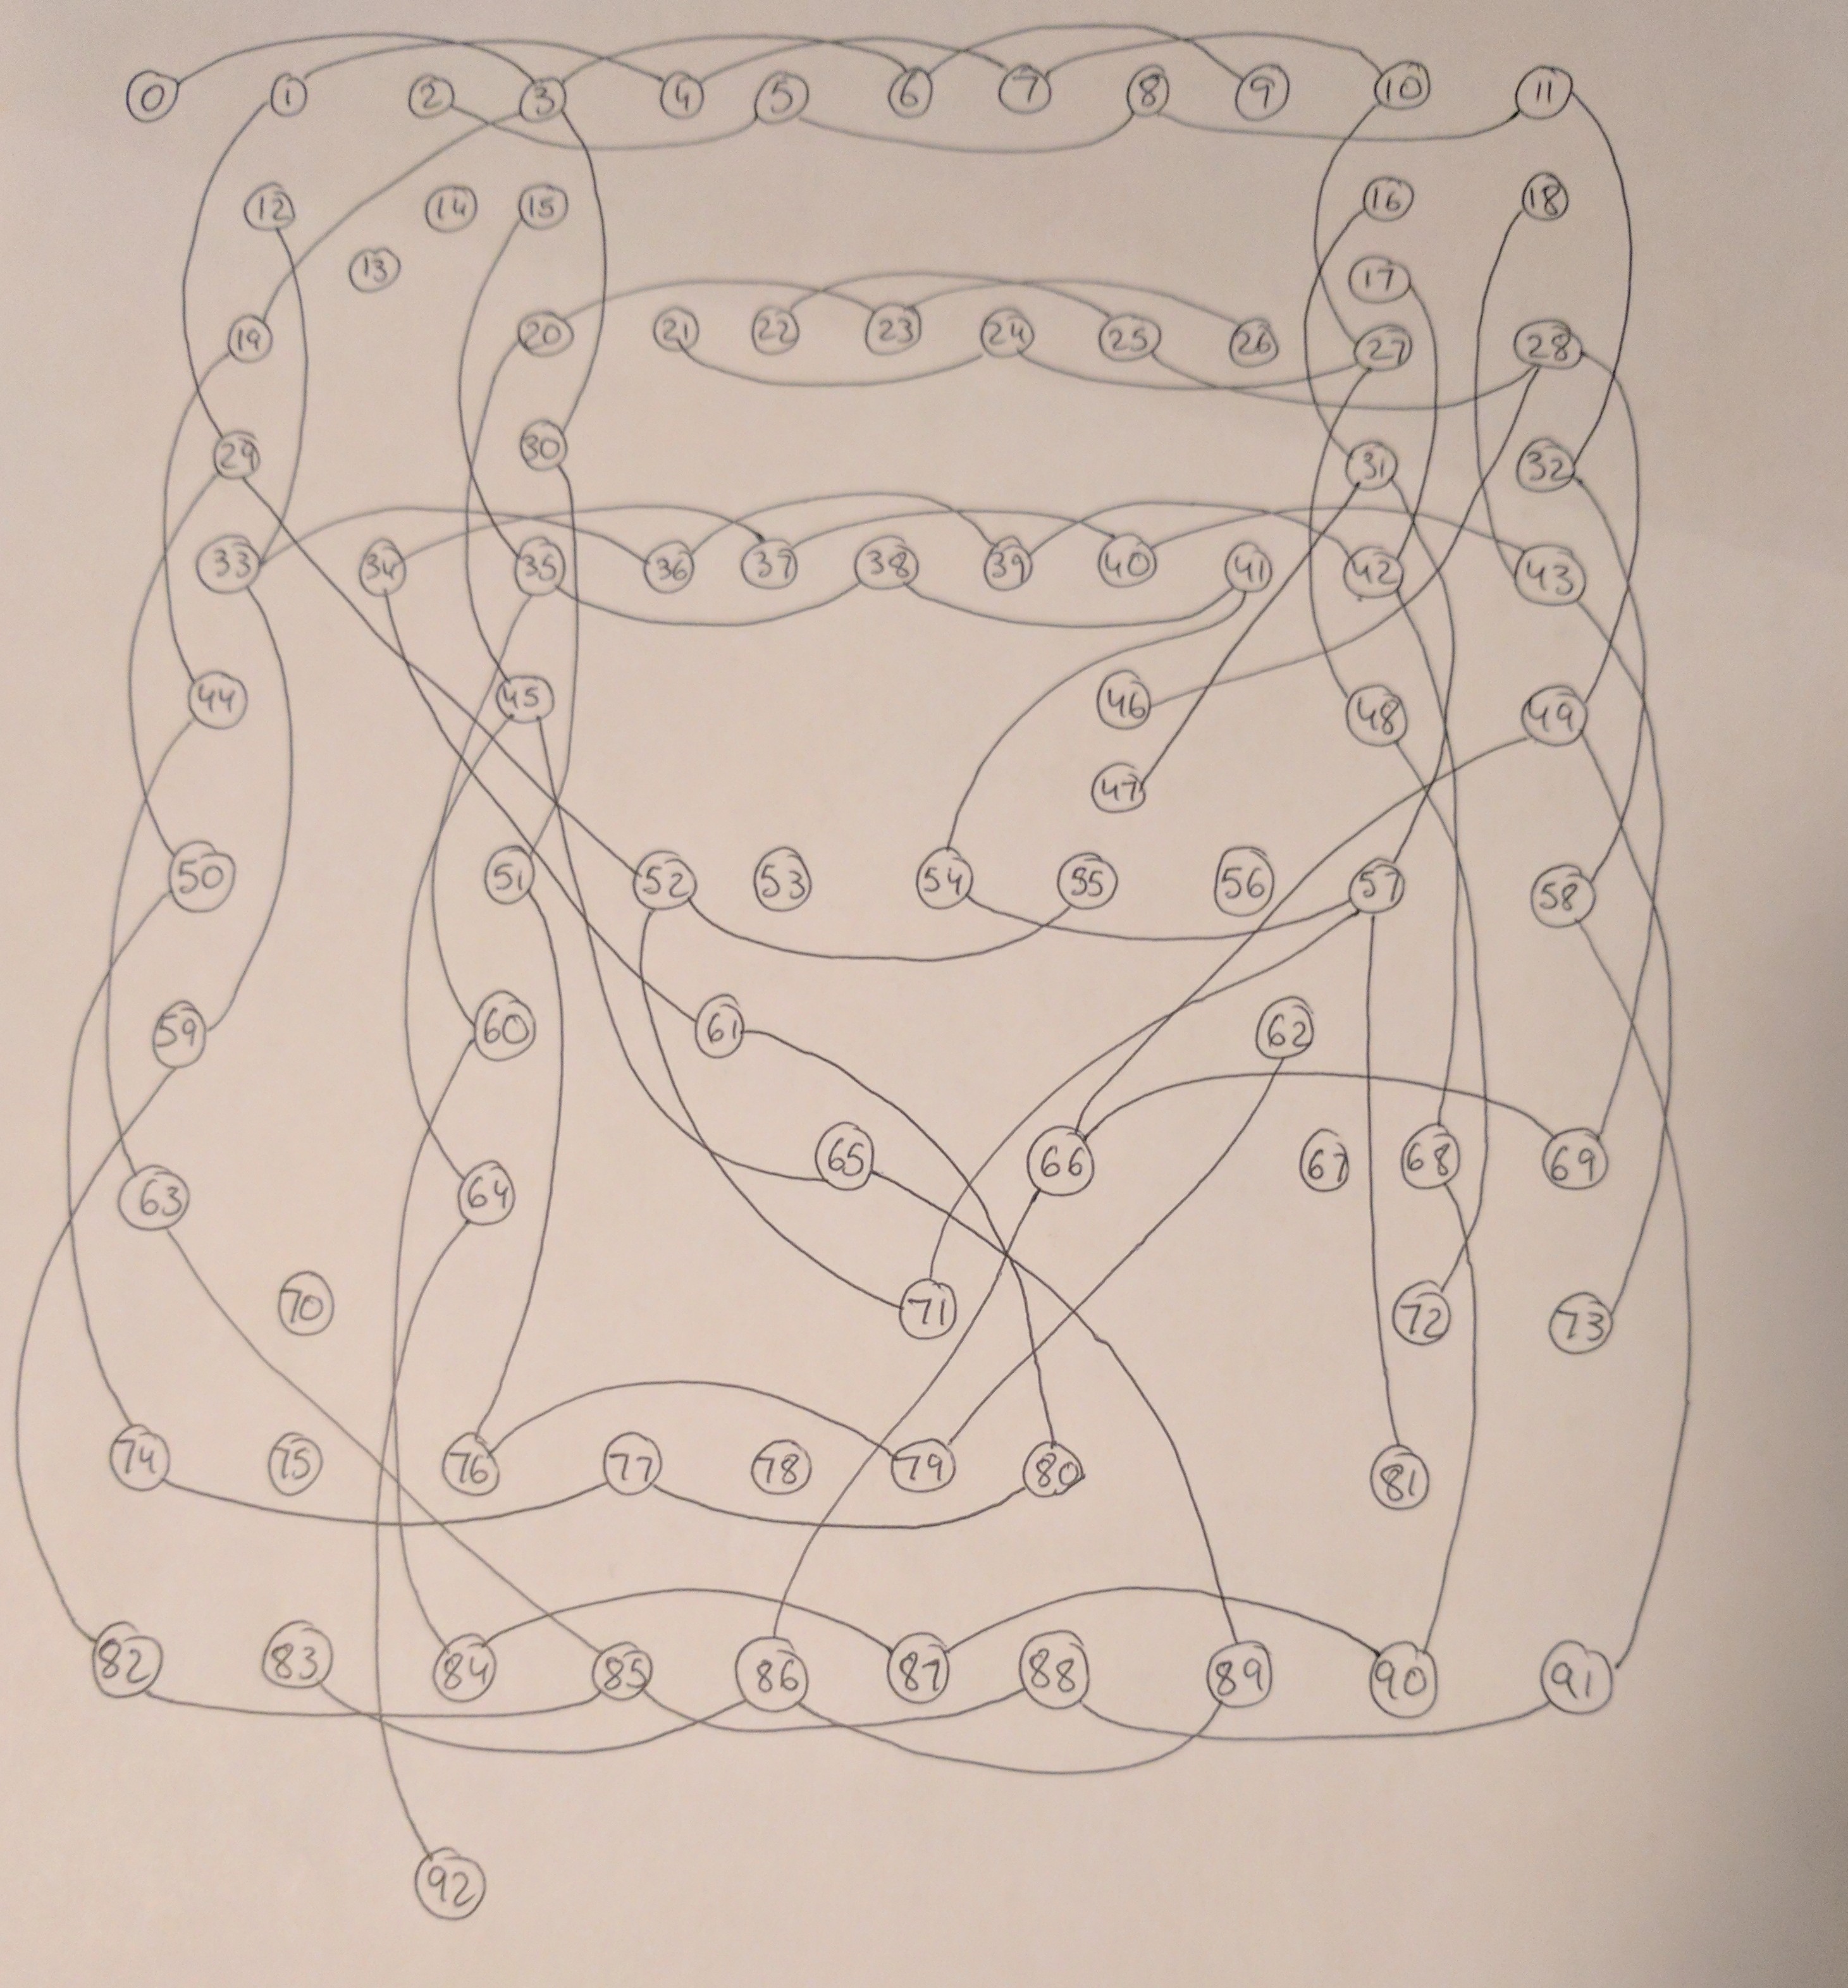 0 1 2 3 4 5 6 7 8 9 10 11
12 14 15 16 18
13 17
19 20 21 22 23 24 25 26 27 28
29 30 31 32
33 34 35 36 37 38 39 40 41 42 43
44 45 46 48 49
47
50 51 52 53 54 55 56 57 58
59 60 61 62
63 64 65 66 67 68 69
70 71 72 73
74 75 76 77 78 79 80 81
82 83 84 85 86 87 88 89 90 91
92